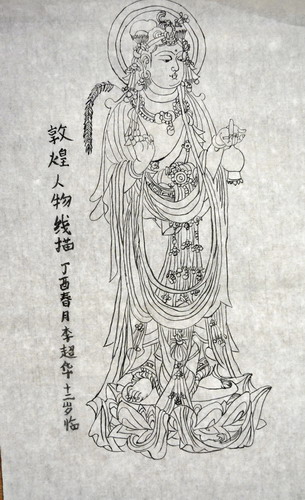 敦煌人物线描
丁酉春月李超华十二岁临